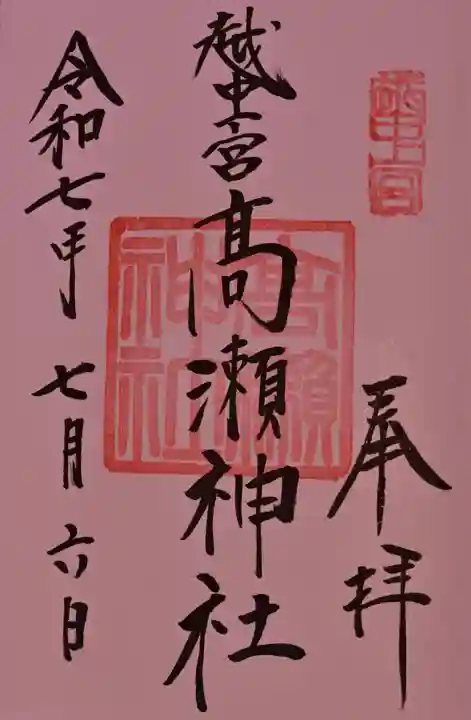 越中一宮
奉拝
越中一宮 高瀬神社
高瀬神社
令和七年 七月 六日